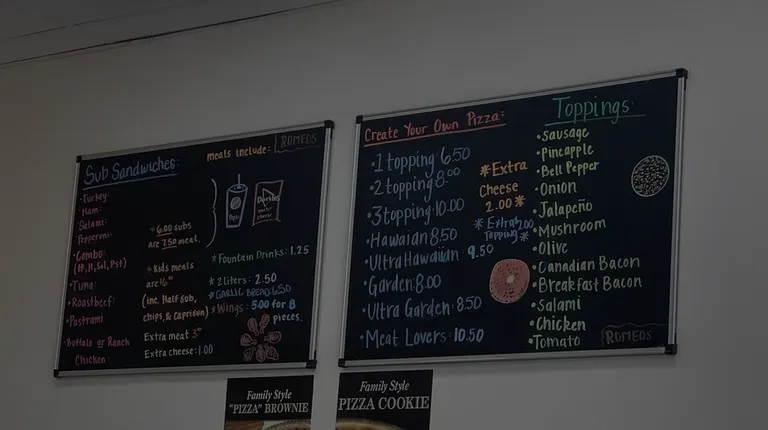 Sub Sandwiches:
meals include: ROMEOS
• Turkey
• Ham
• Salami
• Pepperoni
• Combo
(H,H,Sal,Pst)
• Tuna
• Roastbeef
• Pastrami
• Buffalo or Ranch
Chicken
* 6.00 subs
are 7.50 meal.
* Kids meals
are
(inc. Half sub,
chips, & Caprison)
Extra meat
Extra cheese: 1.00
* Fountain Drinks: 1.25
* 2 liters: 2.50
* GARLIC BREAD: 6.50
* Wings: 5.00 for 8
pieces.
Create Your Own Pizza:
• 1 topping 6.50
• 2 topping 8.00
• 3 topping 10.00
• Hawaiian 8.50
• Ultra Hawaiian 9.50
• Garden: 8.00
• Ultra Garden: 8.50
• Meat Lovers: 10.50
* Extra
Cheese
2.00 *
* Extra 2.00
Topping *
Toppings:
• Sausage
• Pineapple
• Bell Pepper
• Onion
• Jalapeño
• Mushroom
• Olive
• Canadian Bacon
• Breakfast Bacon
• Salami
• Chicken
• Tomato
ROMEOS
Family Style
"PIZZA" BROWNIE
Family Style
PIZZA COOKIE